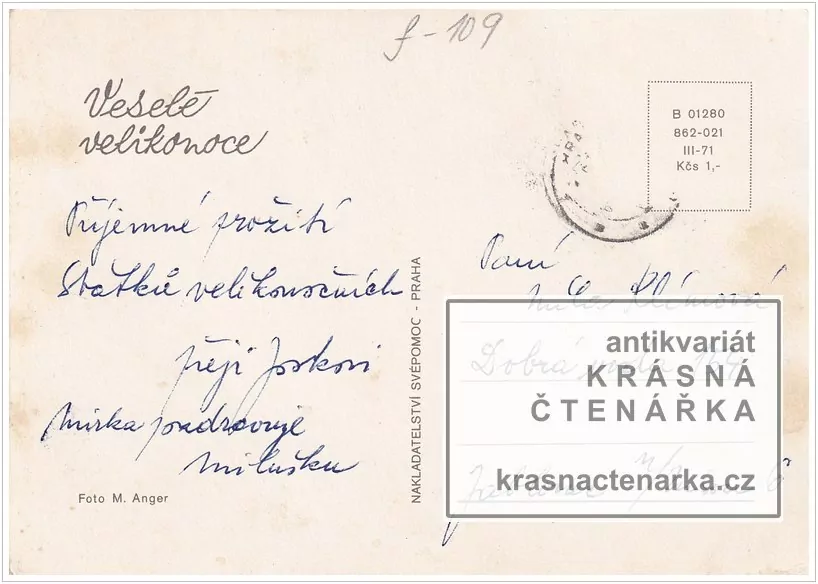 f-109
Veselé
velikonoce
B 01280
862-021
III-71
Kčs 1,-
Příjemné prožití
Svátků velikonočních
přeji
Mirka pozdravuje
Milušku
Foto M. Anger
NAKLADATELSTVÍ SVÉPOMOC - PRAHA
Paní
Míla Klímová
Dobrá 164
antikvariát
KRÁSNÁ
ČTENÁŘKA
krasnactenarka.cz